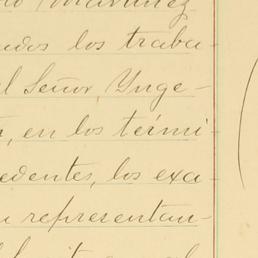 ados los traba-
el Señor Ynge-
, en los térmi-
cedentes, los exa-
representan-